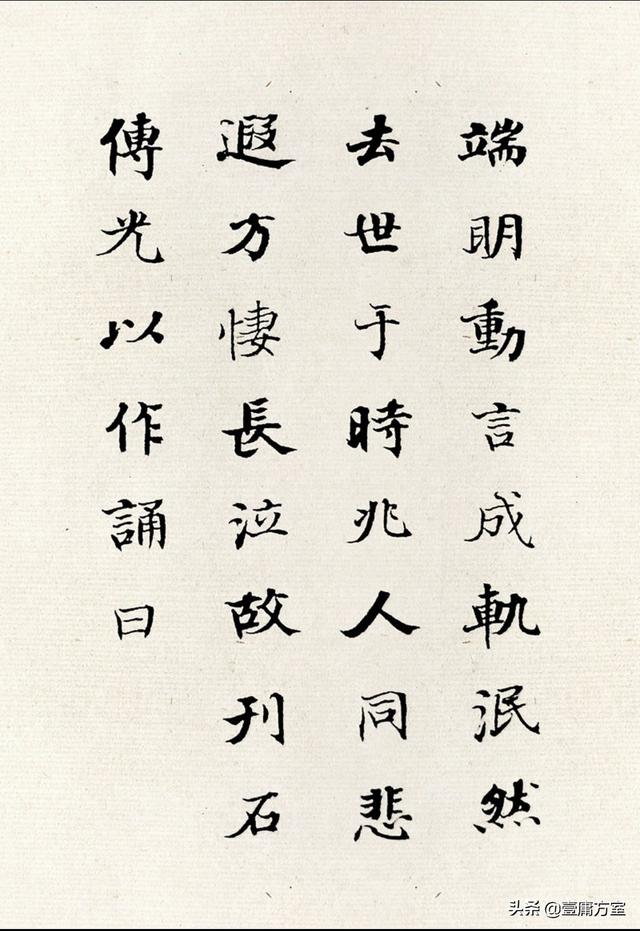 端明動言成軌泯然
去世于時兆人同悲
遐方悽長泣故刊石
傳光以作誦曰
头条 @壹庸方室